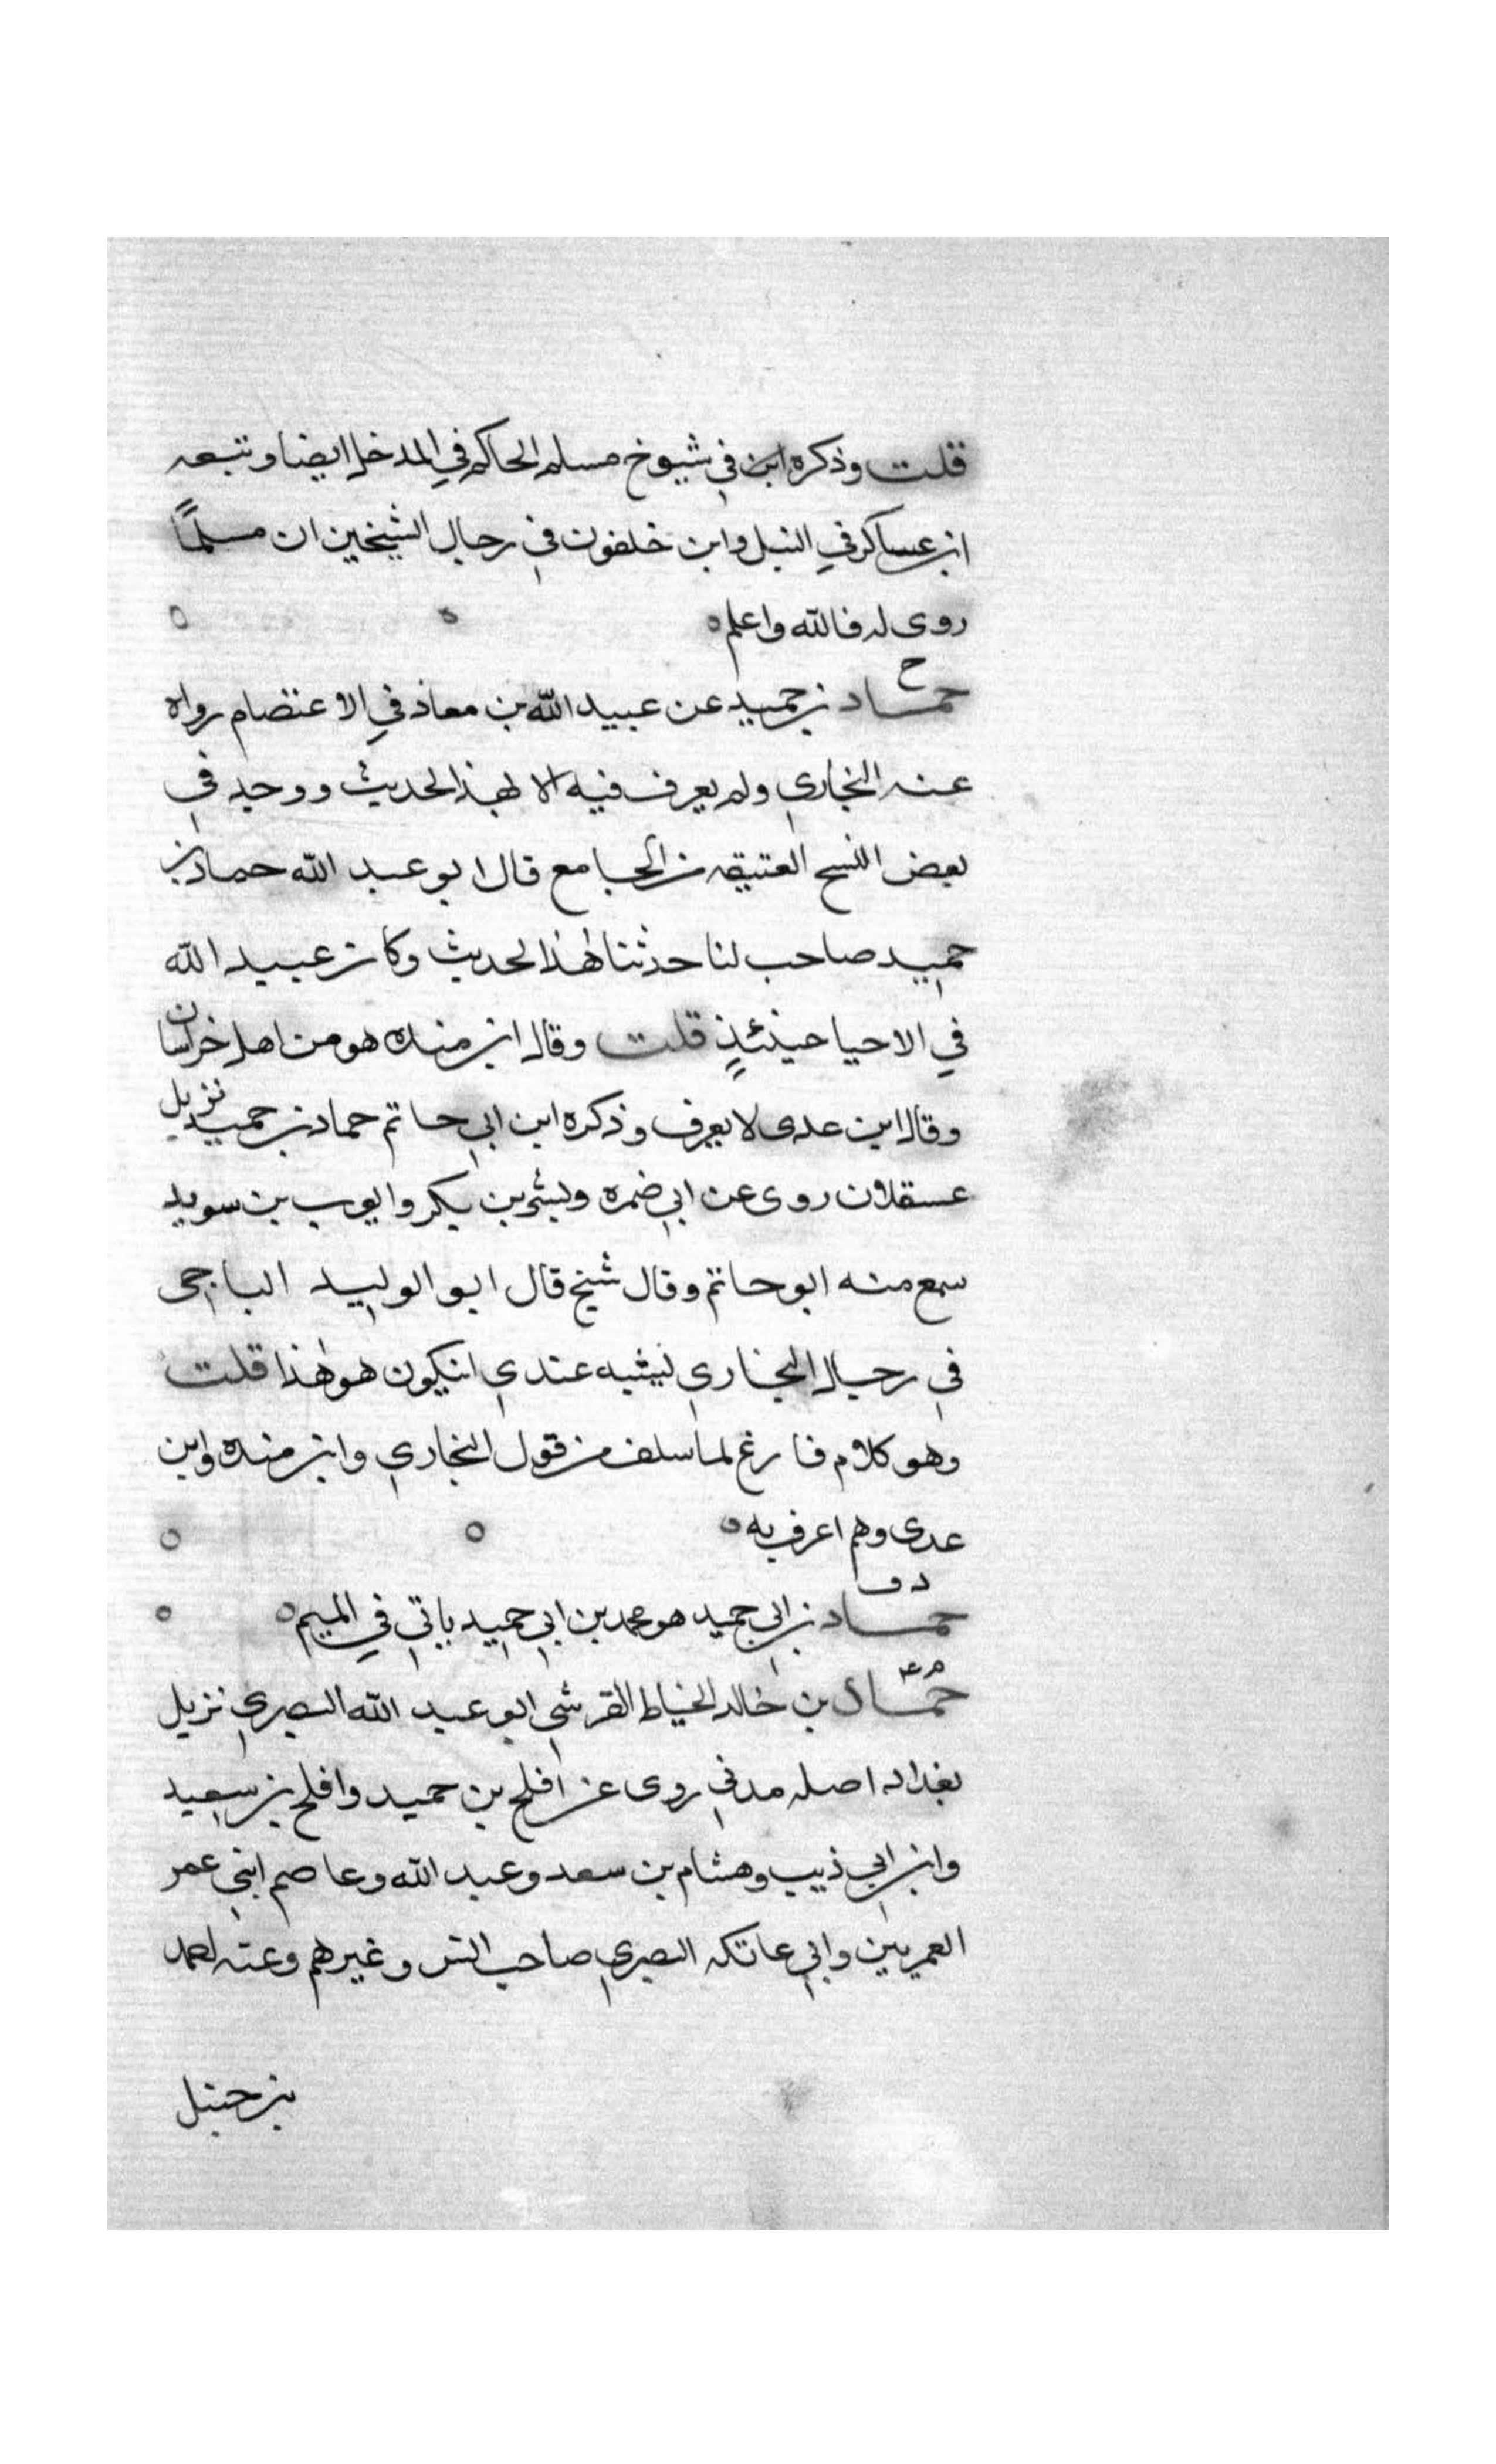 قلت وذكره ابن في شيوخ مسلم الحاكم في المدخل ايضا وتبعه
ابن عساكر في النبل وابن خلفون في رجال الشيخين ان مسلمًا
روى له فالله واعلم ه
ح
حماد بن حميد عن عبيد الله بن معاذ في الاعتصام رواه
عنه البخاري ولم يعرف فيه الا بهذا الحديث ووجد في
بعض النسخ العتيقه من الجامع قال ابو عبد الله حماد بن
حميد صاحب لنا حدثنا هذا الحديث وكان عبيد الله
في الاحيا حينئذٍ قلت وقال ابن منده هو من اهل خراسان
وقال ابن عدى لا يعرف وذكره ابن ابي حاتم حماد بن حميد نزيل
عسقلان روى عن ابي ضمره وبشر بن بكر وايوب بن سويد
سمع منه ابو حاتم وقال شيخ قال ابو الوليد الباجى
في رجال البخاري ليشبه عندي انيكون هو هذا قلت
وهو كلام فارغ لما سلف من قول البخاري وابن منده وابن
عدى وهم اعرف به ه
د ق
حماد بن ابي حميد هو محمد بن ابي حميد ياتي في الميم ه
م عه
حمّاد بن خالد الخياط القرشي ابو عبد الله البصري نزيل
بغداد اصله مدني روى عن افلح بن حميد وافلح بن سعيد
وابن ابي ذيب وهشام بن سعد وعبد الله وعاصم ابني عمر
العمريين وابي عاتكه البصري صاحب انس وغيرهم وعنه احمد
بن حنبل